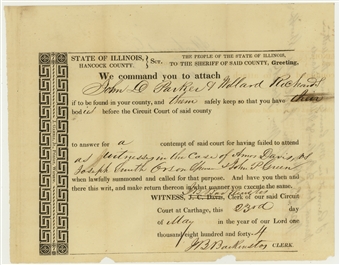 STATE OF ILLINOIS, HANCOCK COUNTY. } Scт. THE PEOPLE OF THE STATE OF ILLINOIS, TO THE SHERIFF OF SAID COUNTY, Greeting.
We command you to attach
John D Parker & Willard Richards
if to be found in your county, and them safely keep so that you have their
bodies before the Circuit Court of said county
to answer for a contempt of said court for having failed to attend
as witnesses in the Case of Amos Davis, vs
Joseph Smith Orson &
when lawfully summoned and called for that purpose. And have you then and
there this writ, and make return thereon in what manner you execute the same.
J B Backenstos
WITNESS, J. C. Davis, Clerk of our said Circuit
Court at Carthage, this 23rd day of
May in the year of our Lord one
thousand eight hundred and forty-4
J B Backenstos CLERK.